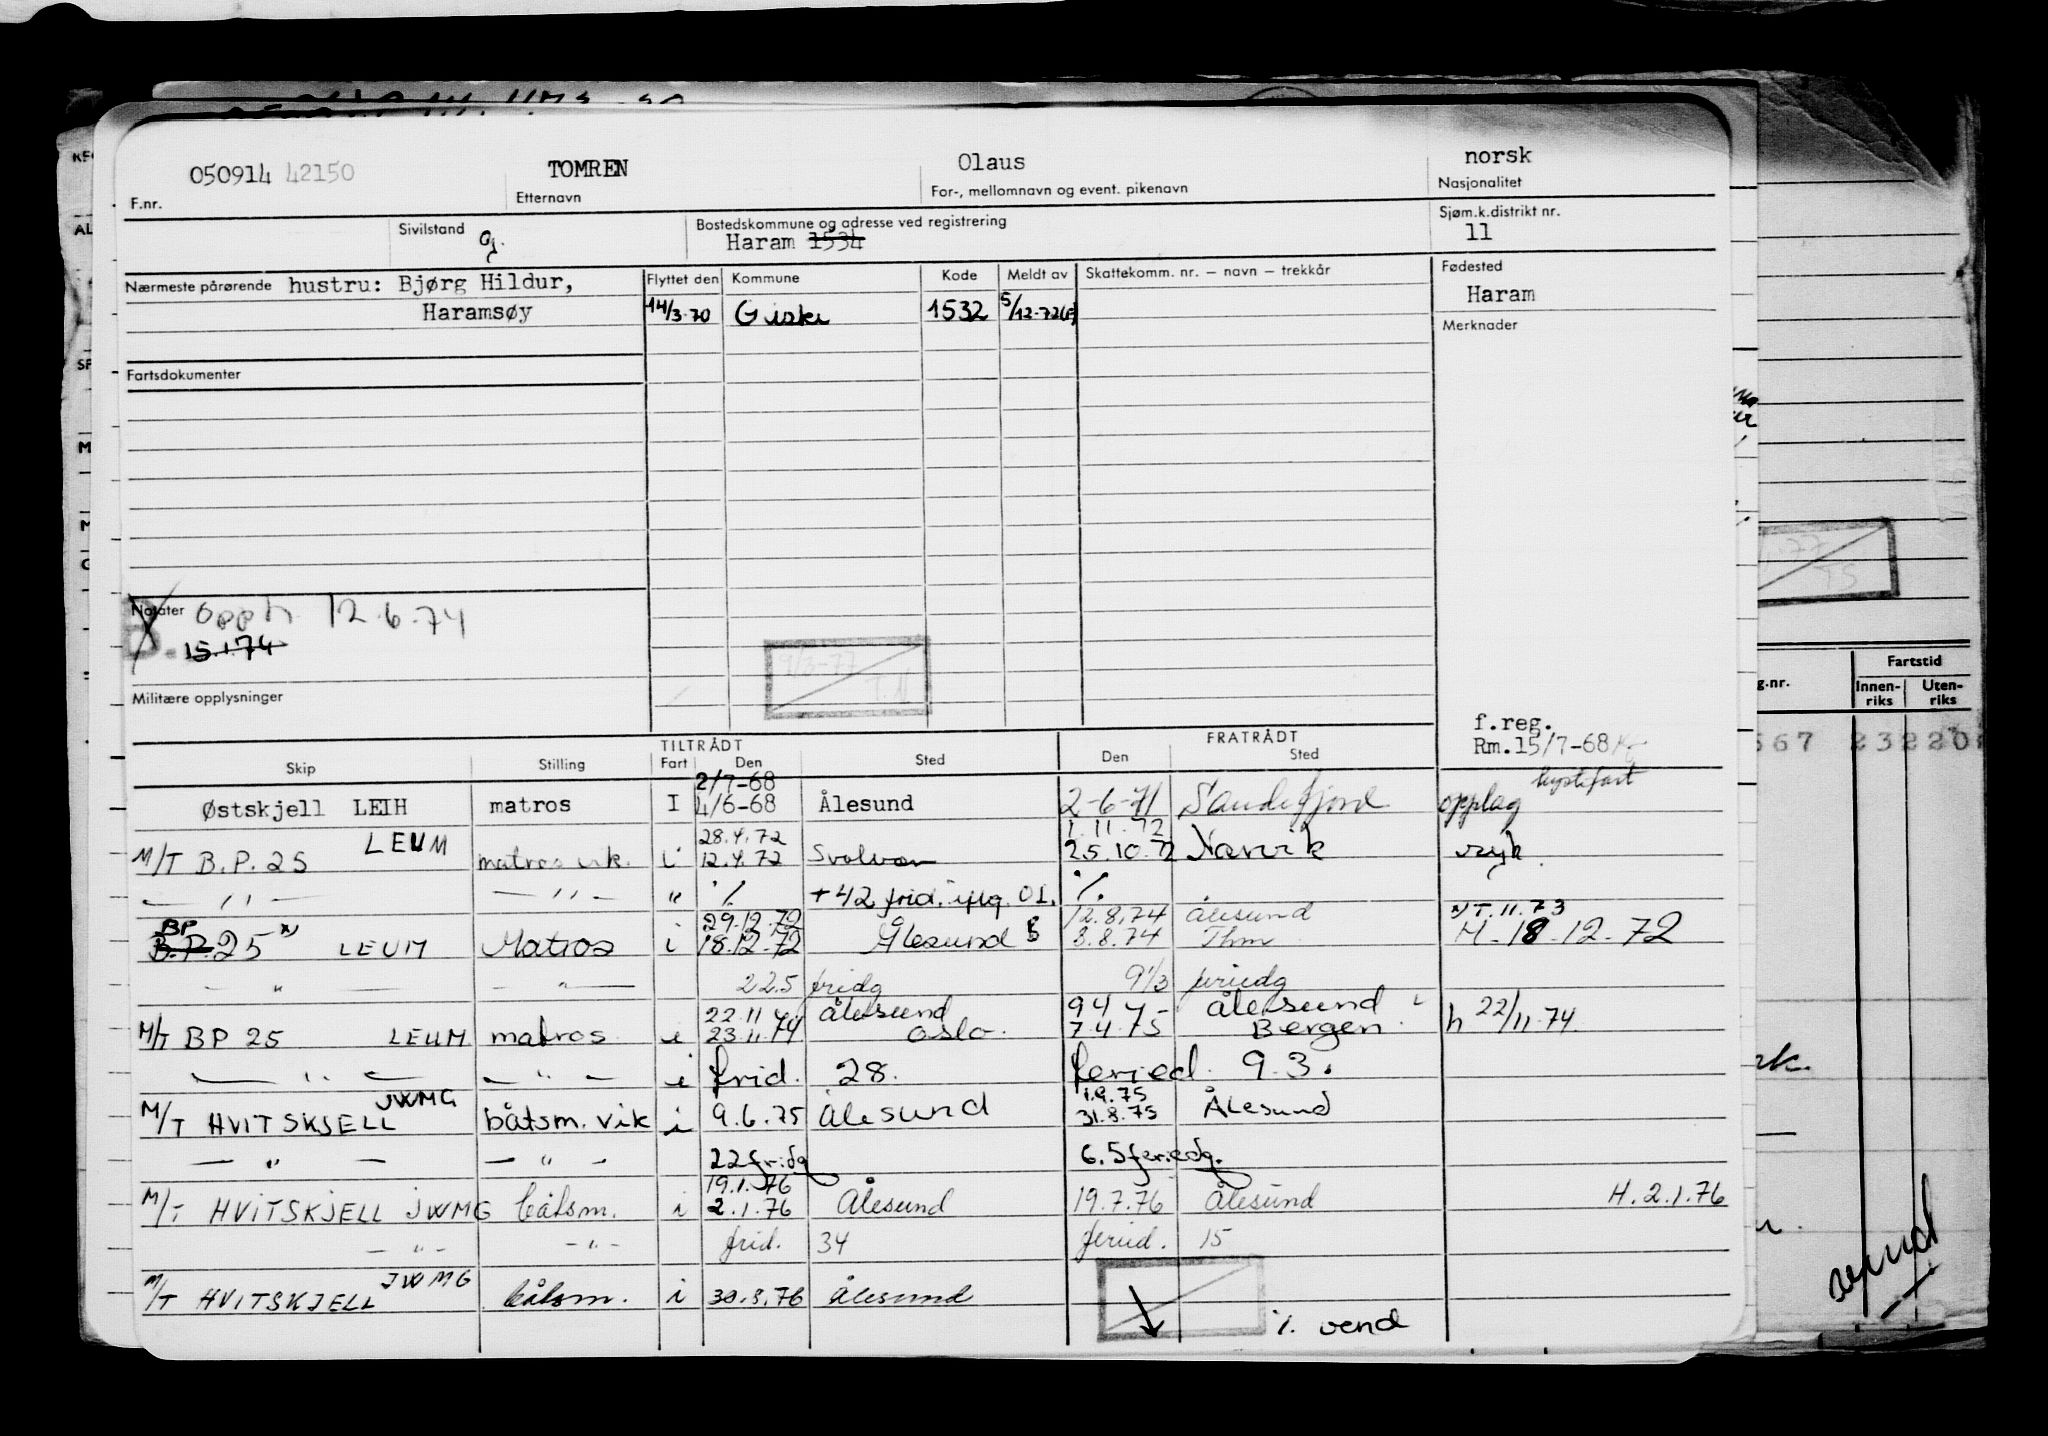 050914 42150 TOMREN Olaus norsk
F.nr. Etternavn For-, mellomnavn og event. pikenavn Nasjonalitet
Sivilstand g. Bostedskommune og adresse ved registrering Sjøm.k.distrikt nr.
Haram 1534 11
Nærmeste pårørende hustru: Bjørg Hildur, Flyttet den Kommune Kode Meldt av Skattekomm. nr. — navn — trekkår Fødested
Haramsøy 14/3-70 Giske 1532 5/12-72 Haram
Merknader
Fartsdokumenter
Notater opph 12.6.74
15.1.74
9/3-77
Militære opplysninger
f.reg.
Rm.15/7-68
TILTRÅDT FRATRÅDT
Skip Stilling Fart Den Sted Den Sted
2/7-68
Østskjell LEIH matros I 4/6-68 Ålesund 2-6-71 Sandefjord opplag
28.4.72 1.11.72
M/T B.P.25 LEUM matros vik. i 12.4.72 Svolvær 25.10.72 Narvik
— " — — " — " % +42 frid. iflg. OL. %
29.12.72 12.8.74 Ålesund x) T.11.73
BP
B.P. 25 x) LEUM Matros i 18.12.72 Ålesund 8.8.74 Thm M-18-12-72
— " — — " — 225 fridg 9 1/3 feriedg
22.11 Ålesund 9 4 Ålesund
M/T BP 25 LEUM matros i 23.11.74 Oslo. 7.4.75 Bergen h 22/11.74
— " — — " — i frid. 28. feried. 9.3.
1.9.75
M/T HVITSKJELL JWMG båtsm. vik i 9.6.75 Ålesund 31.8.75 Ålesund
— " — — " — 22 fridg 6.5 feriedg.
19.1.76
M/T HVITSKJELL JWMG båtsm. i 2.1.76 Ålesund 19.7.76 Ålesund H.2.1.76
— " — — " — frid. 34 feried. 15
M/T HVITSKJELL JWMG båtsm. i 30.8.76 Ålesund
vend
g.nr. Fartstid
Innen-riks Uten-riks
567 232 20